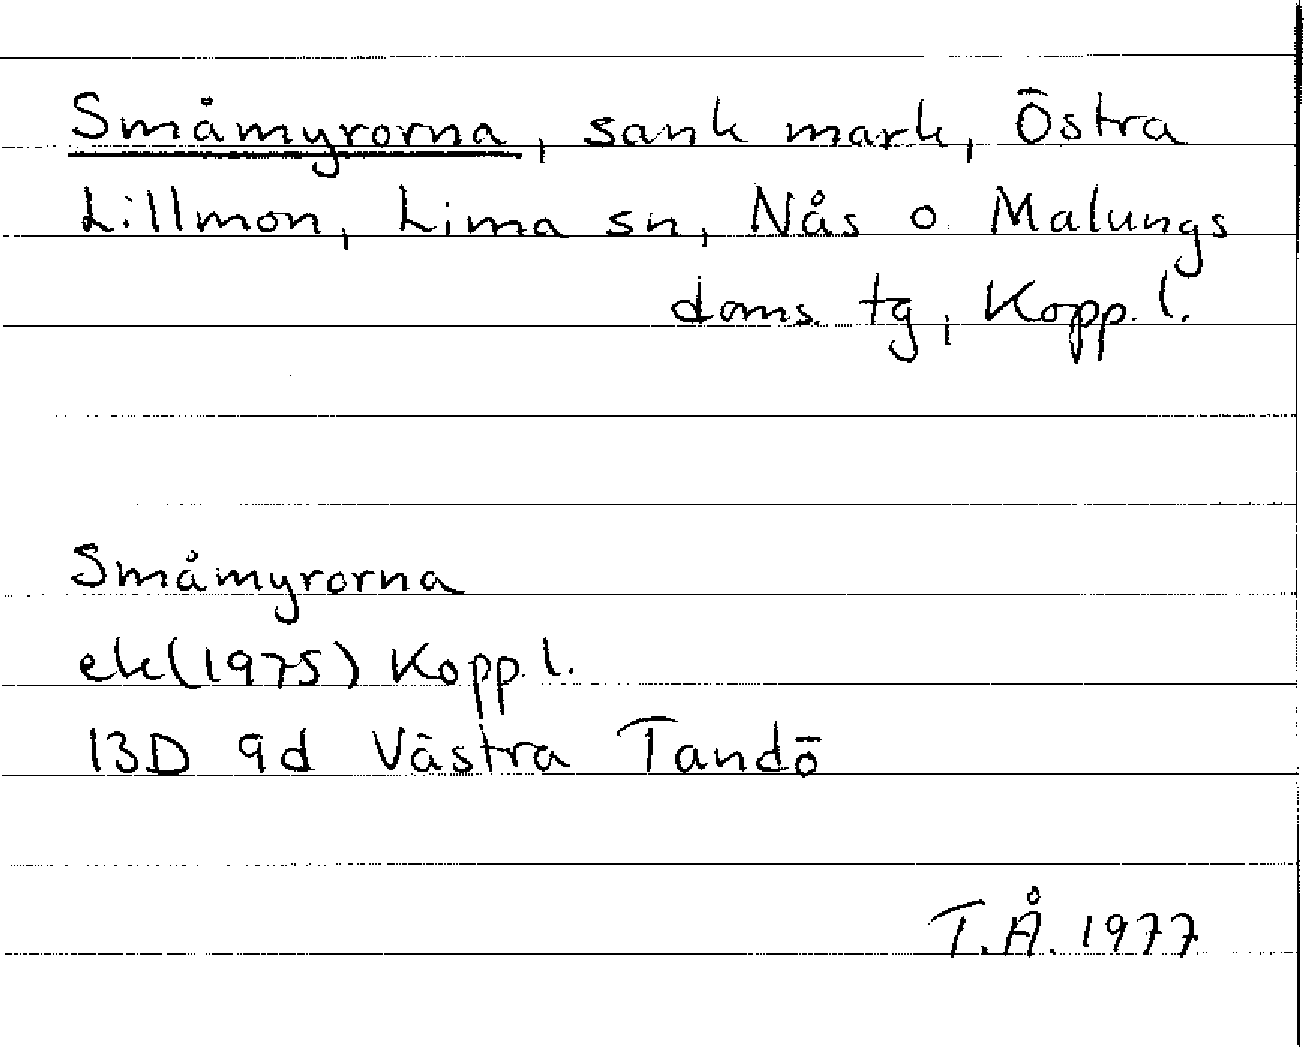 Småmyrorna, sank mark, Östra
Lillmon, Lima sn, Nås o Malungs
doms. tg, Kopp. l.
Småmyrorna
ek(1975) Kopp. l.
13D 9d Västra Tandö
T.Å. 1977